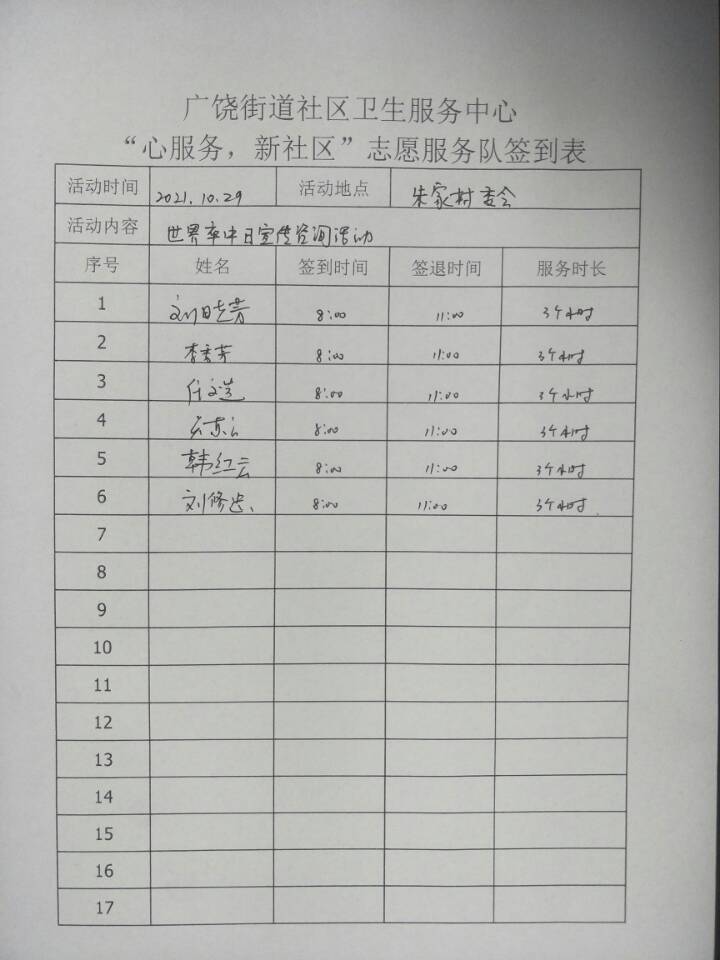 广饶街道社区卫生服务中心
“心服务，新社区”志愿服务队签到表
活动时间 2021.10.29 活动地点 朱家村委会
活动内容 世界卒中日宣传咨询活动
序号 姓名 签到时间 签退时间 服务时长
1 刘晓芳 8:00 11:00 3个小时
2 李秀芳 8:00 11:00 3个小时
3 8:00 11:00 3个小时
4 8:00 11:00 3个小时
5 韩红云 8:00 11:00 3个小时
6 刘修忠 8:00 11:00 3个小时
7
8
9
10
11
12
13
14
15
16
17